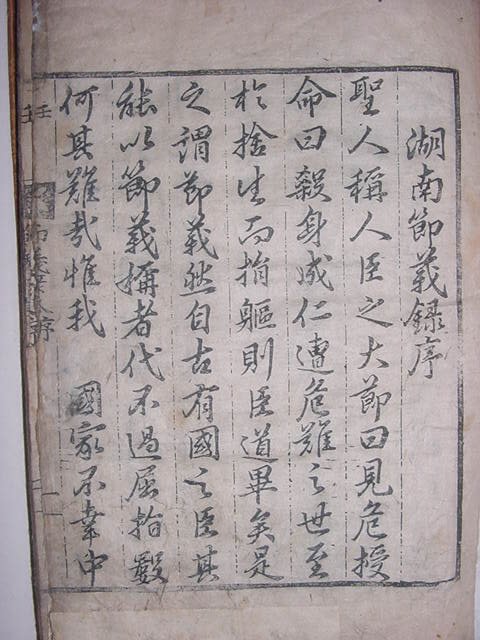 湖南節義錄序
聖人稱人臣之大節曰見危授
命曰殺身成仁遭危難之世至
於捨生而捐軀則臣道畢矣是
之謂節義然自古有國之臣其
能以節義稱者代不過屈指數
何其難哉惟我 國家不幸中
序